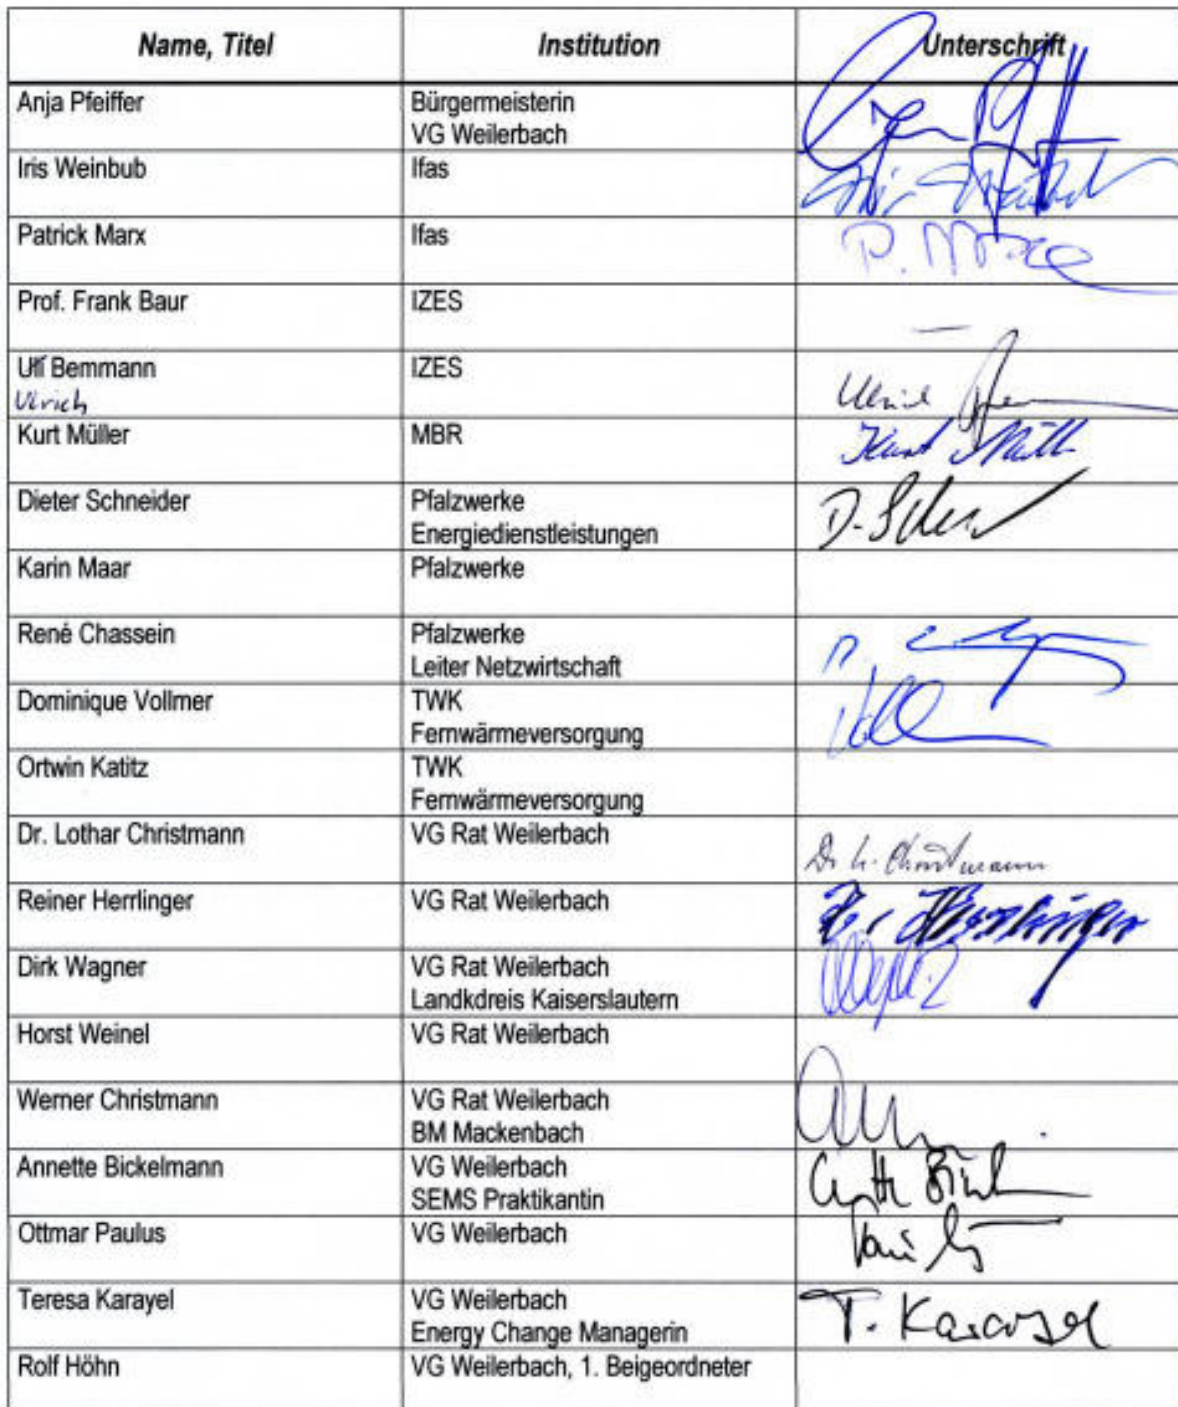 Name, Titel Institution Unterschrift
Anja Pfeiffer Bürgermeisterin
VG Weilerbach
Iris Weinbub Ifas
Patrick Marx Ifas P. Marx
Prof. Frank Baur IZES
Uli Bemmann IZES
Ulrich Ulrich
Kurt Müller MBR Kurt Müll
Dieter Schneider Pfalzwerke
Energiedienstleistungen
Karin Maar Pfalzwerke
René Chassein Pfalzwerke
Leiter Netzwirtschaft
Dominique Vollmer TWK
Fernwärmeversorgung
Ortwin Katitz TWK
Fernwärmeversorgung
Dr. Lothar Christmann VG Rat Weilerbach
Dr. L. Christmann
Reiner Herrlinger VG Rat Weilerbach R. Herrlinger
Dirk Wagner VG Rat Weilerbach
Landkdreis Kaiserslautern
Horst Weinel VG Rat Weilerbach
Werner Christmann VG Rat Weilerbach
BM Mackenbach
Annette Bickelmann VG Weilerbach
SEMS Praktikantin
Ottmar Paulus VG Weilerbach
Teresa Karayel VG Weilerbach T. Karayel
Energy Change Managerin
Rolf Höhn VG Weilerbach, 1. Beigeordneter